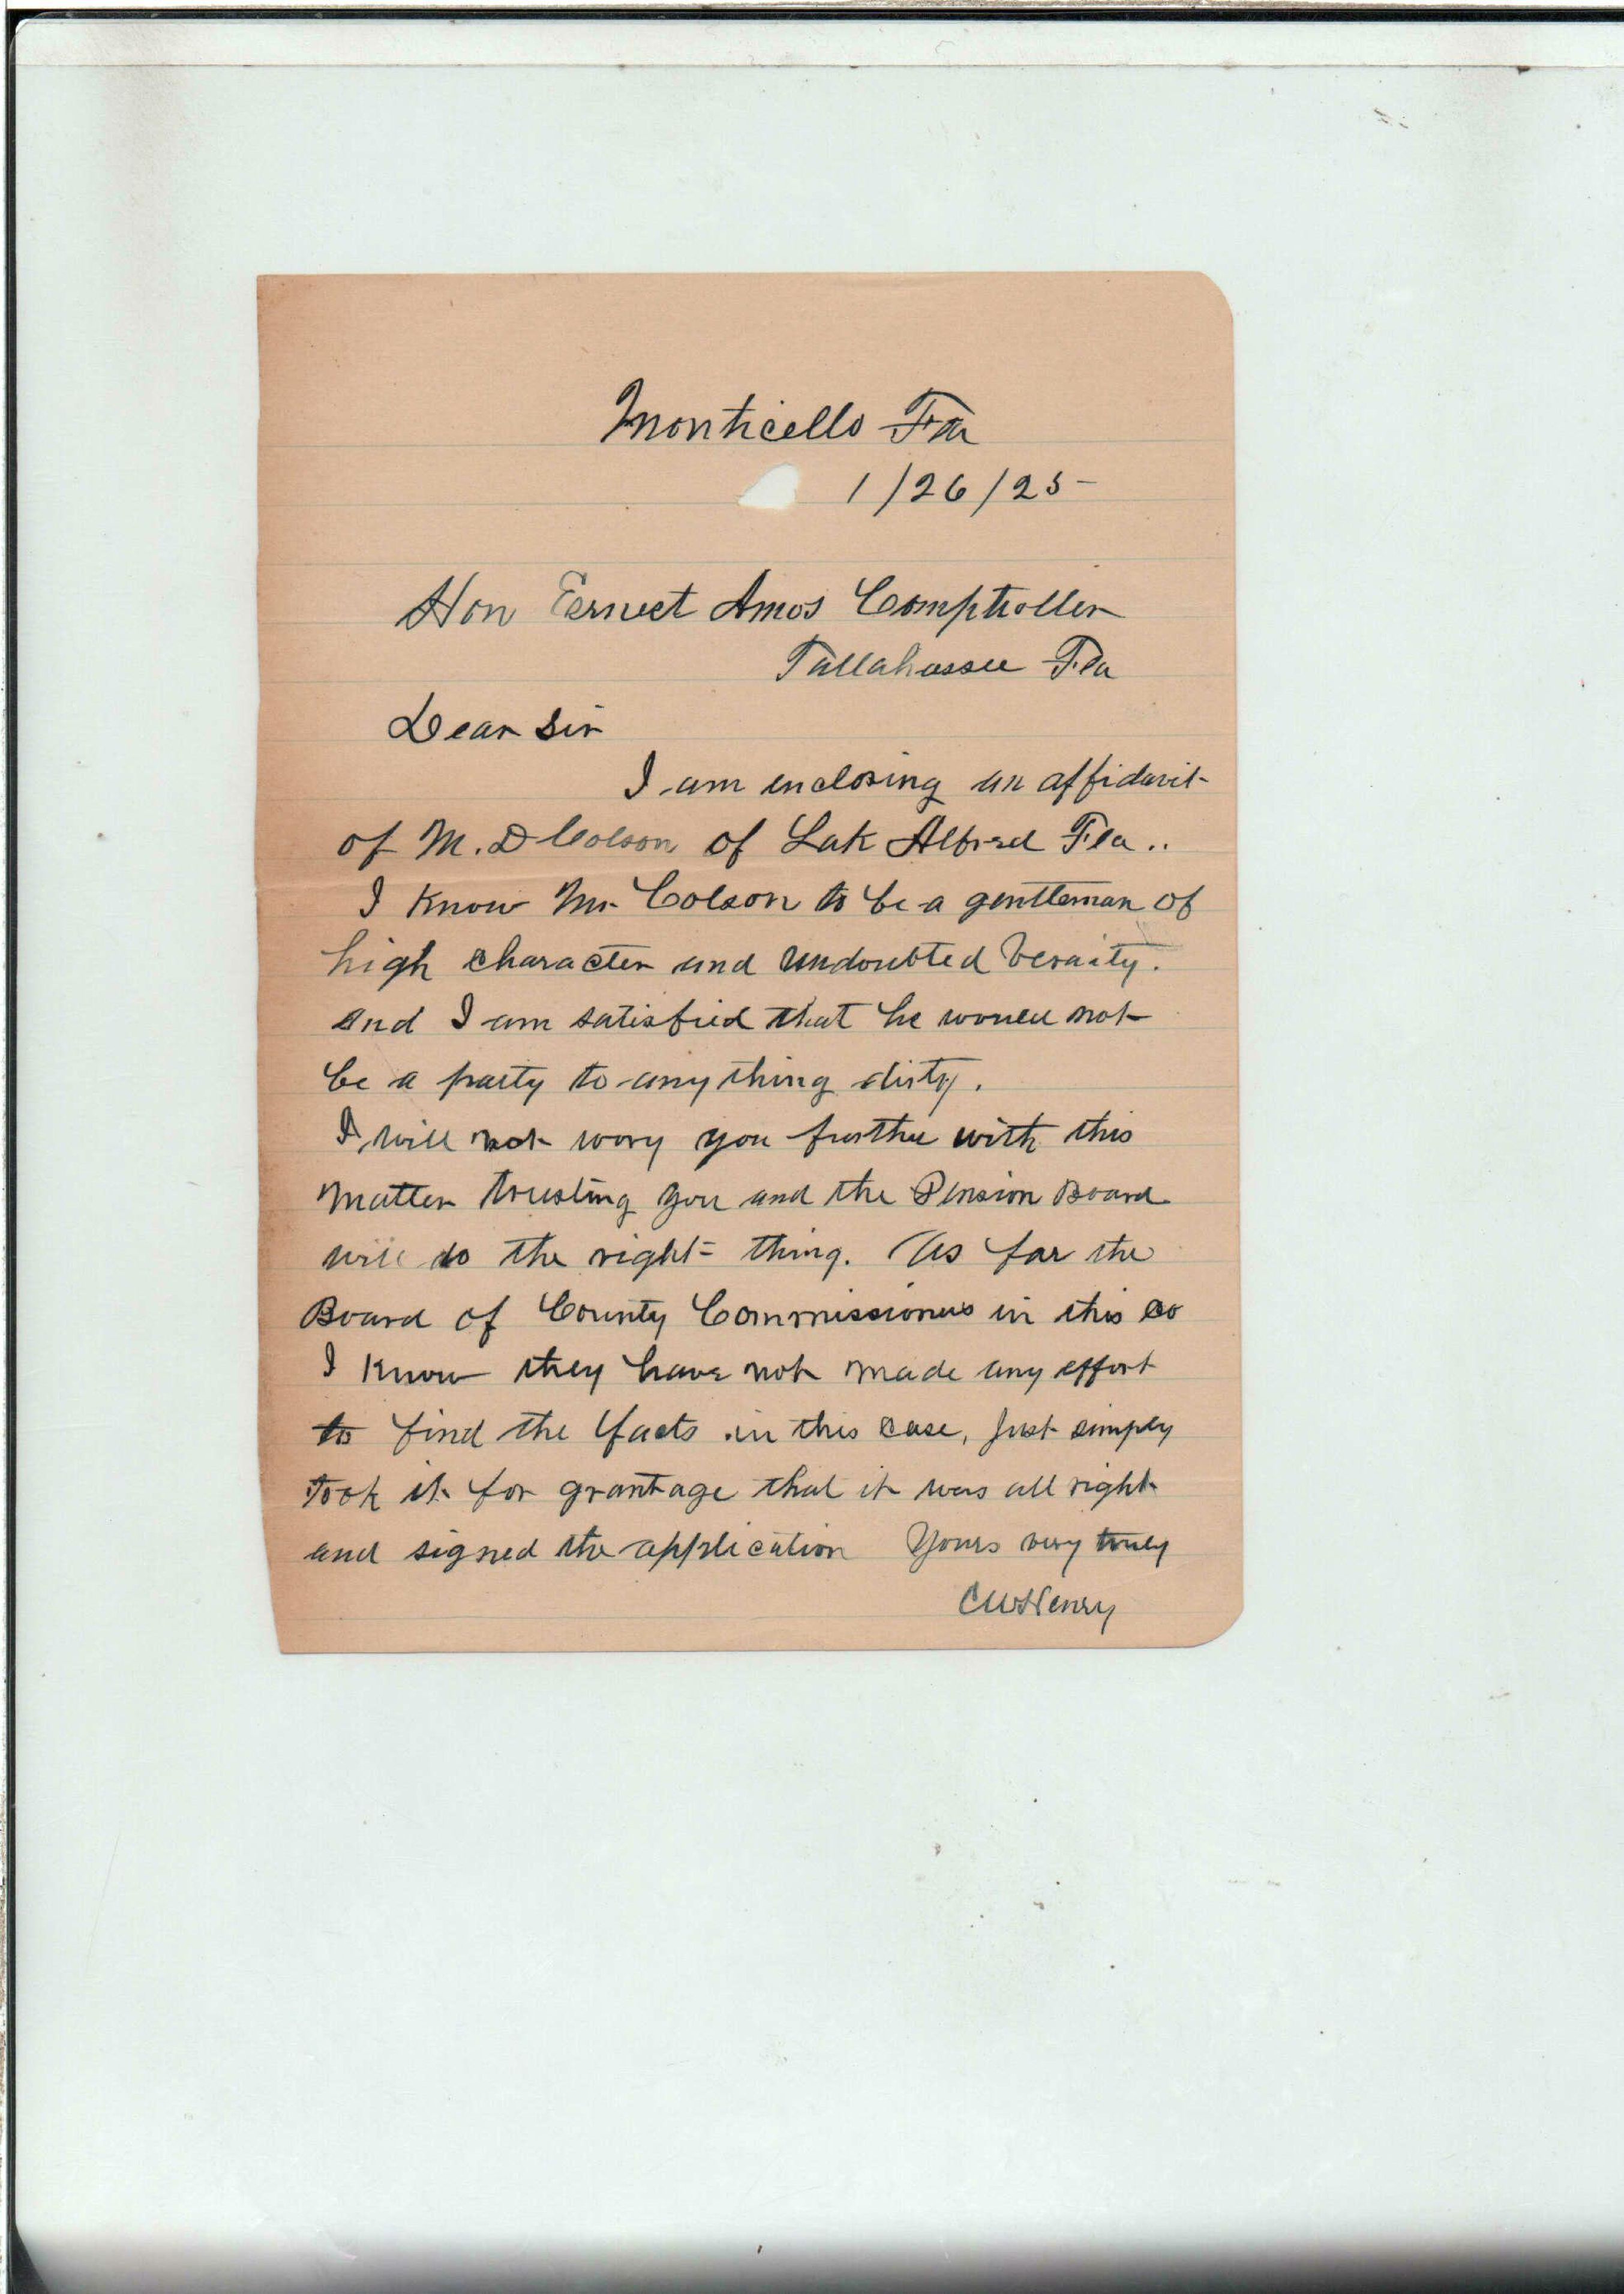 Monticello Fla
1/26/25-
Hon Earnest Amos Comptroller
Tallahassee Fla
Dear Sir
I am enclosing an affidavit
of M. D Colson of Lak Alfred Fla..
I Know Mr Colson to be a gentleman of
high character and undoubted veraity.
and I am satisfied that he would not
be a party to any thing dirty.
I will not wory you further with this
matter trusting you and the Pension Board
will do the right thing. As far the
Board of County Commissioners in this Co
I Know they have not made any effort
to find the facts in this case, Just simply
took it for grantage that it was all right
and signed the application Yours very truly
CW Henry